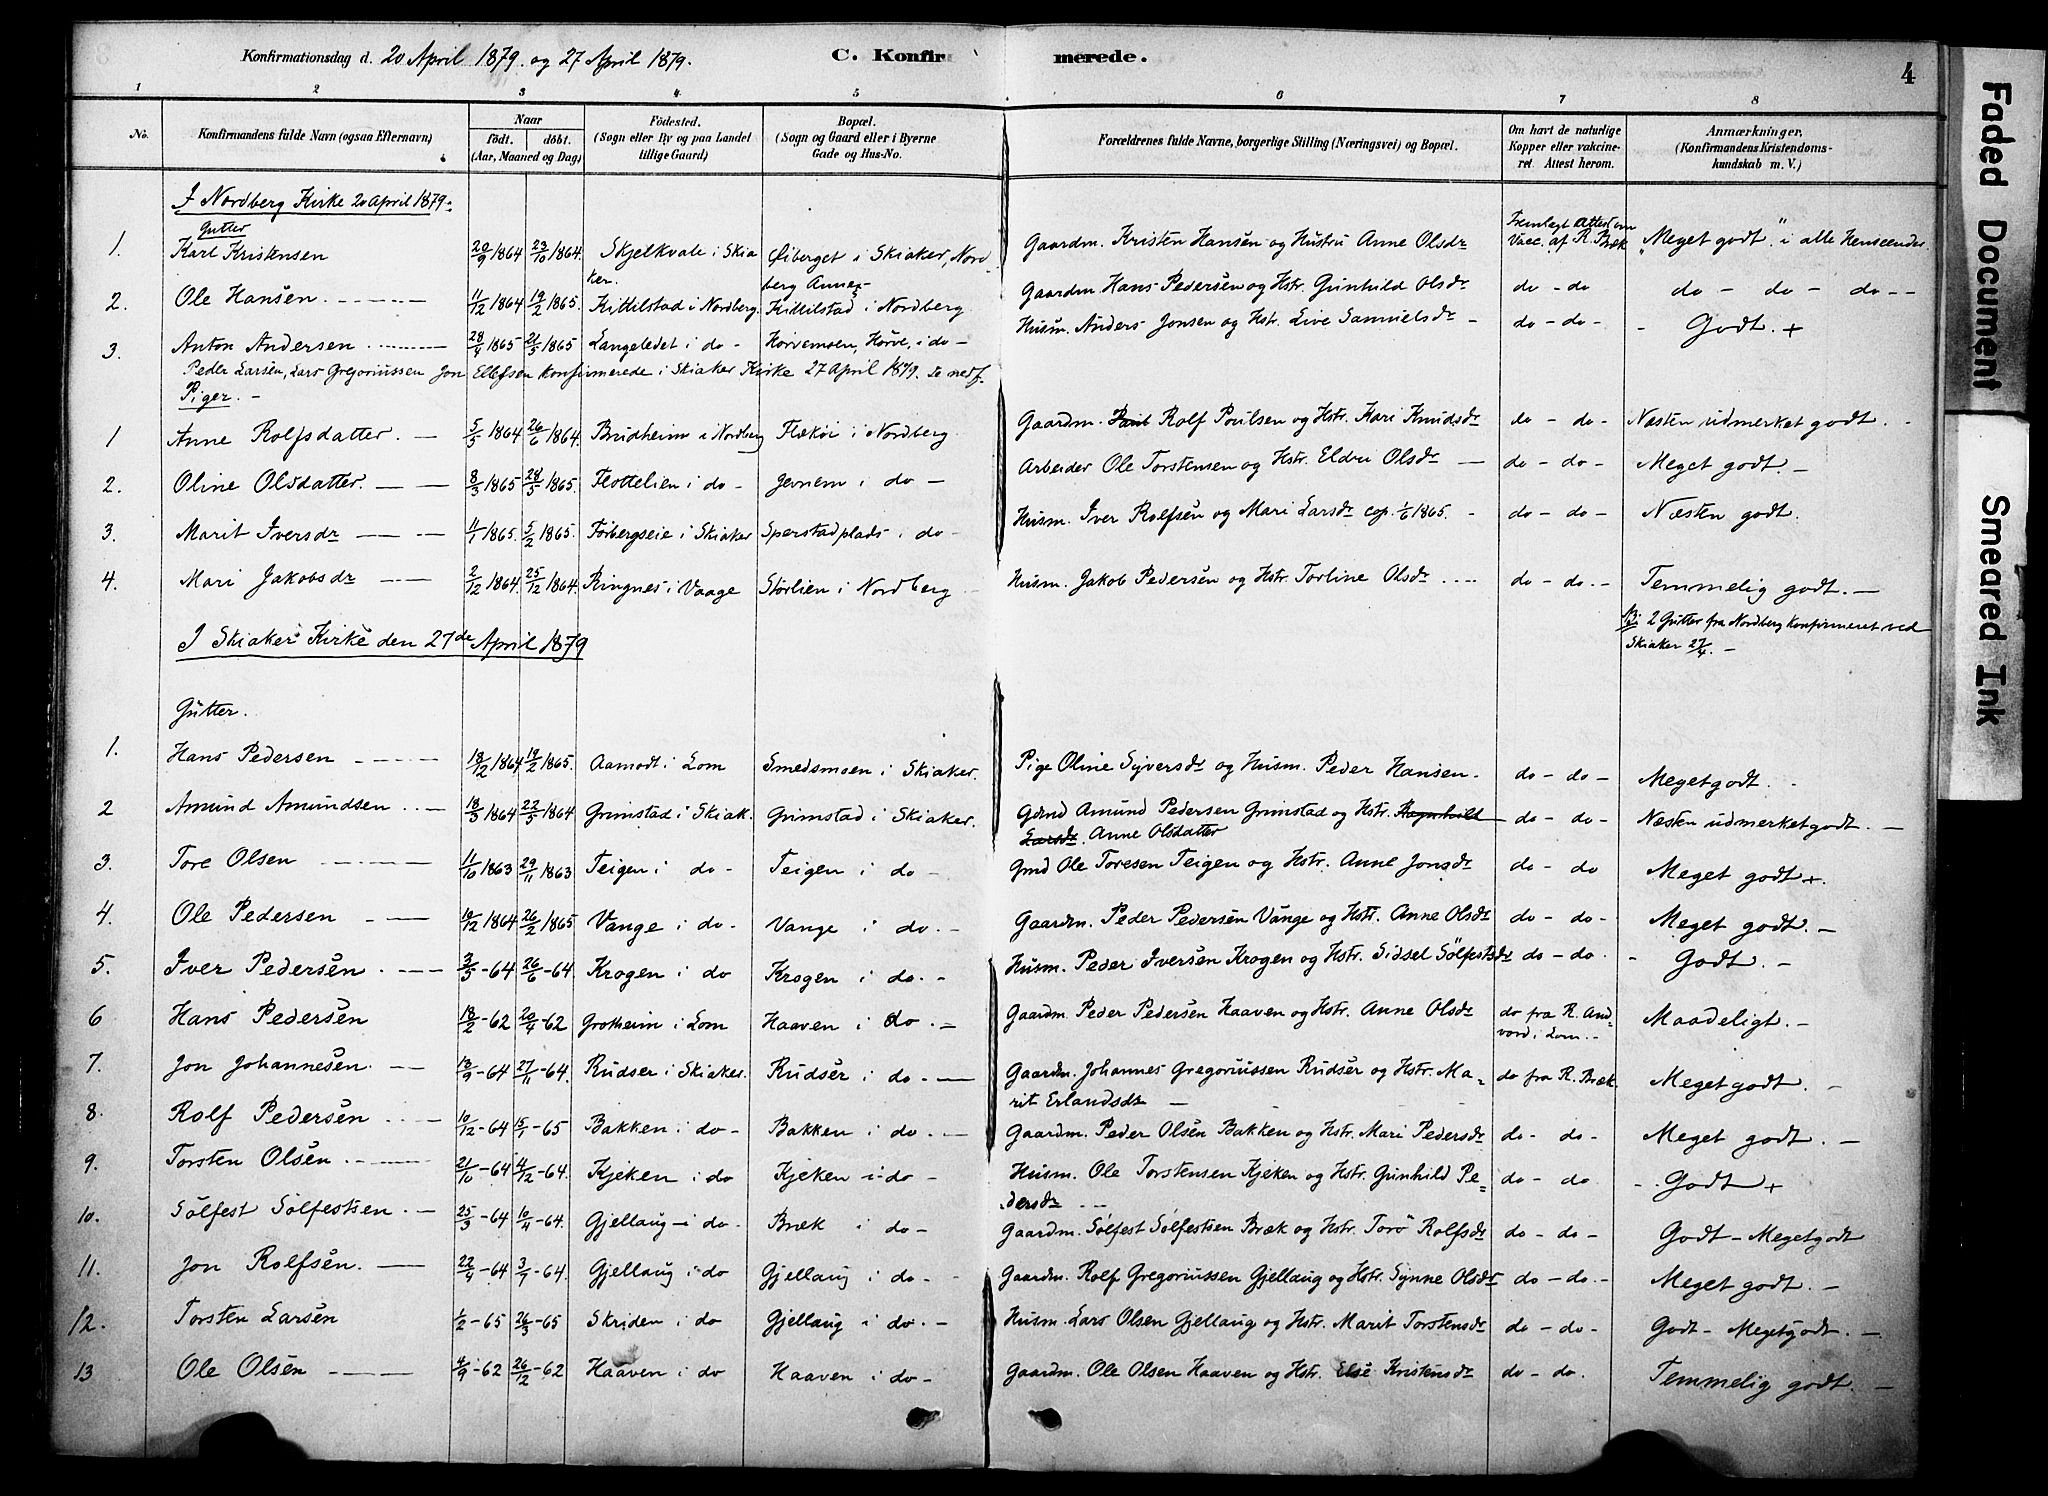 Konfirmationsdag d. 20 April 1879. og 27 April 1879.
C. Konfir
merede.
4
1 2 3 4 5 6 7 8
No.
Konfirmandens fulde Navn (ogsaa Efternavn)
Naar
födt. döbt.
(Aar, Maaned og Dag)
Födested.
(Sogn eller By og paa Landet
tillige Gaard)
Bopæl.
(Sogn og Gaard eller i Byerne
Gade og Hus-No.
Forældrenes fulde Navne, borgerlige Stilling (Næringsvei) og Bopæl.
Om havt de naturlige
Kopper eller vakcine-
ret. Attest herom.
Anmærkninger.
(Konfirmandens Kristendoms-
kundskab m. V.)
I Nordberg Kirke 20 April 1879.
Gutter
1. Karl Kristensen 20/9 1864 23/10 1864. Skjelkvale i Skiaker. Øiberget i Skiaker, Nordberg Annex Gaardm. Kristen Hansen og Hustru Anne Olsdr Fremlagt Attest om Vacc. af R. Bræk "Meget godt" i alle Henseender
2. Ole Hansen 11/12 1864 19/2 1865. Kittilstad i Nordberg. Kittilstad i Nordberg Gaardm. Hans Pedersen og Hstr. Gunhild Olsdr do - do do - do - do - -
3. Anton Andersen 28/4 1865 21/5 1865 Langeledet i do - Horvemoen, Horve, i do - Husm. Anders Jonsen og Hstr. Live Samuelsdr - do - do - - Godt. +
Peder Larsen, Lars Gregoriussen Jon Ellefsen Konfirmerede i Skiaker Kirke 27 April 1879. Se nedf.
Piger. -
1 Anne Rolfsdatter. 5/5 1864 26/6 1864. Brudheim i Nordberg Flækøi i Nordberg Gaardm. Rolf Poulsen og Hstr. Kari Knudsdr do - do - Næsten udmerket godt.
2. Oline Olsdatter. 8/3 1865 28/5 1865. Flottelien i do - Jevnem i do - Arbeider Ole Torstensen og Hstr. Eldri Olsdr do - do - Meget godt. -
3. Marit Iversdr 11/1 1865. 5/2 1865. Forbergseie i Skiaker Sperstadplads i do - Husm. Iver Rolfsen og Mari Larsdr cop. 1/6 1865. - do - do - Næsten godt.
4. Mari Jakobsdr 2/12 1864 25/12 1864. Ringnes i Vaage Storlien i Nordberg Husm. Jakob Pedersen og Hstr. Torline Olsdr do - do. - Temmelig godt. -
NB: 2 Gutter fra Nordberg konfirmeret ved
Skiaker 27/4. -
I Skiaker Kirke den 27de April 1879
Gutter.
1. Hans Pedersen 18/12 1864 19/2 1865. Aamodt i Lom Smedsmoen i Skiaker. Pige Oline Syversdr og Husm. Peder Hansen. do - do - Meget godt. -
2 Amund Amundsen 18/3 1864 22/5 1864 Grimstad i Skiak. Grimstad i Skiaker. Gdmd Amund Pedersen Grimstad og Hstr. Ragnhild Larsdr. Anne Olsdatter do - do - Næsten udmerket godt. -
3. Tore Olsen 11/10 1863 29/11 1863 Teigen i do - Teigen i do - Gmd Ole Toresen Teigen og Hstr. Anne Jonsdr do - do Meget godt +.
4. Ole Pedersen 10/12 1864 26/2 1865 Vange i do - Vange i do. - Gaardm. Peder Pedersen Vange og Hstr. Anne Olsdr do - do - Meget godt. -
5. Iver Pedersen 3/5 - 64 26/6 - 64 Krogen i do Krogen i do. - Husm. Peder Iversen Krogen og Hstr. Sidsel Sølfestsdr do - do. - Godt. -
6 Hans Pedersen 18/2 - 62 20/4 - 62 Grotheim i Lom Haaven i do. - Gaardm. Peder Pedersen Haaven og Hstr. Anne Olsdr do fra R. Andvord i Lom. - Maadeligt. -
7. Jon Johannesen. 13/9 - 64 27/11 - 64. Rudser i Skiaker. Rudser i do. - Gaardm. Johannes Gregoriussen Rudser og Hstr. Marit Erlandsdr do fra R. Bræk Meget godt. -
8. Rolf Pedersen 10/12 - 64 15/1 - 65 Bakken i do - Bakken i do. - Gaardm. Peder Olsen Bakken og Hstr. Mari Pedersdr do - do - Meget godt. -
9. Torsten Olsen 21/10 - 64 4/12 - 64. Kjeken i do Kjeken i do - Husm. Ole Torstensen Kjeken og Hstr. Gunhild Pedersdr do - do - Godt +
10. Sølfest Sølfestsen. 25/3 - 64 10/4 - 64. Gjellaug i do. Bræk i do - Gaardm. Sølfest Sølfestsen Bræk og Hstr. Torø Rolfsdr do - do - Godt - Meget godt
11. Jon Rolfsen. 22/4 - 64 3/7 - 64. Gjellaug i do Gjellaug i do - Gaardm. Rolf Gregoriussen Gjellaug og Hstr. Synne Olsdr do - do. - Meget godt. -
12. Torsten Larsen 1/2 - 65 26/3 - 65 Skriden i do Gjellaug i do. - Husm. Lars Olsen Gjellaug og Hstr. Marit Torstensdr do - do - Godt - Meget godt. -
13 Ole Olsen 4/9 - 62 26/12 - 62 Haaven i do Haaven i do - Gaardm. Ole Olsen Haaven og Hstr. Else Kristensdr do - do. Temmelig godt. -
Faded Document
Smeared Ink